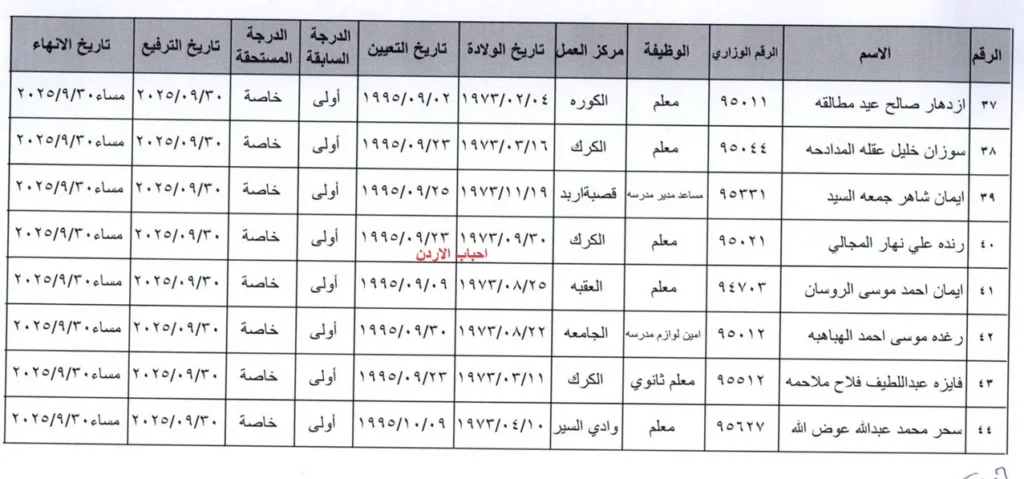 الرقم الاسم الرقم الوزاري الوظيفة مركز العمل تاريخ الولادة تاريخ التعيين الدرجة السابقة الدرجة المستحقة تاريخ الترفيع تاريخ الانهاء
٣٧ ازدهار صالح عيد مطالقه ٩٥٠١١ معلم الكوره ١٩٧٣/٠٢/٠٤ ١٩٩٥/٠٩/٠٢ أولى خاصة ٢٠٢٥/٠٩/٣٠ مساء٢٠٢٥/٩/٣٠
٣٨ سوزان خليل عقله المدادحه ٩٥٠٤٤ معلم الكرك ١٩٧٣/٠٣/١٦ ١٩٩٥/٠٩/٢٣ أولى خاصة ٢٠٢٥/٠٩/٣٠ مساء٢٠٢٥/٩/٣٠
٣٩ ايمان شاهر جمعه السيد ٩٥٣٣١ مساعد مدير مدرسه قصبة اربد ١٩٧٣/١١/١٩ ١٩٩٥/٠٩/٢٥ أولى خاصة ٢٠٢٥/٠٩/٣٠ مساء٢٠٢٥/٩/٣٠
٤٠ رنده علي نهار المجالي ٩٥٠٢١ معلم الكرك ١٩٧٣/٠٩/٣٠ ١٩٩٥/٠٩/٢٣ أولى خاصة ٢٠٢٥/٠٩/٣٠ مساء٢٠٢٥/٩/٣٠
احباب الاردن
٤١ ايمان احمد موسى الروسان ٩٤٧٠٣ معلم العقبه ١٩٧٣/٠٨/٢٥ ١٩٩٥/٠٩/٠٩ أولى خاصة ٢٠٢٥/٠٩/٣٠ مساء٢٠٢٥/٩/٣٠
٤٢ رغده موسى احمد الهباهبه ٩٥٠١٢ امين لوازم مدرسه الجامعه ١٩٧٣/٠٨/٢٢ ١٩٩٥/٠٩/٣٠ أولى خاصة ٢٠٢٥/٠٩/٣٠ مساء٢٠٢٥/٩/٣٠
٤٣ فايزه عبداللطيف فلاح ملاحمه ٩٥٥١٢ معلم ثانوي الكرك ١٩٧٣/٠٣/١١ ١٩٩٥/٠٩/٢٣ أولى خاصة ٢٠٢٥/٠٩/٣٠ مساء٢٠٢٥/٩/٣٠
٤٤ سحر محمد عبدالله عوض الله ٩٥٦٢٧ معلم وادي السير ١٩٧٣/٠٤/١٠ ١٩٩٥/١٠/٠٩ أولى خاصة ٢٠٢٥/٠٩/٣٠ مساء٢٠٢٥/٩/٣٠